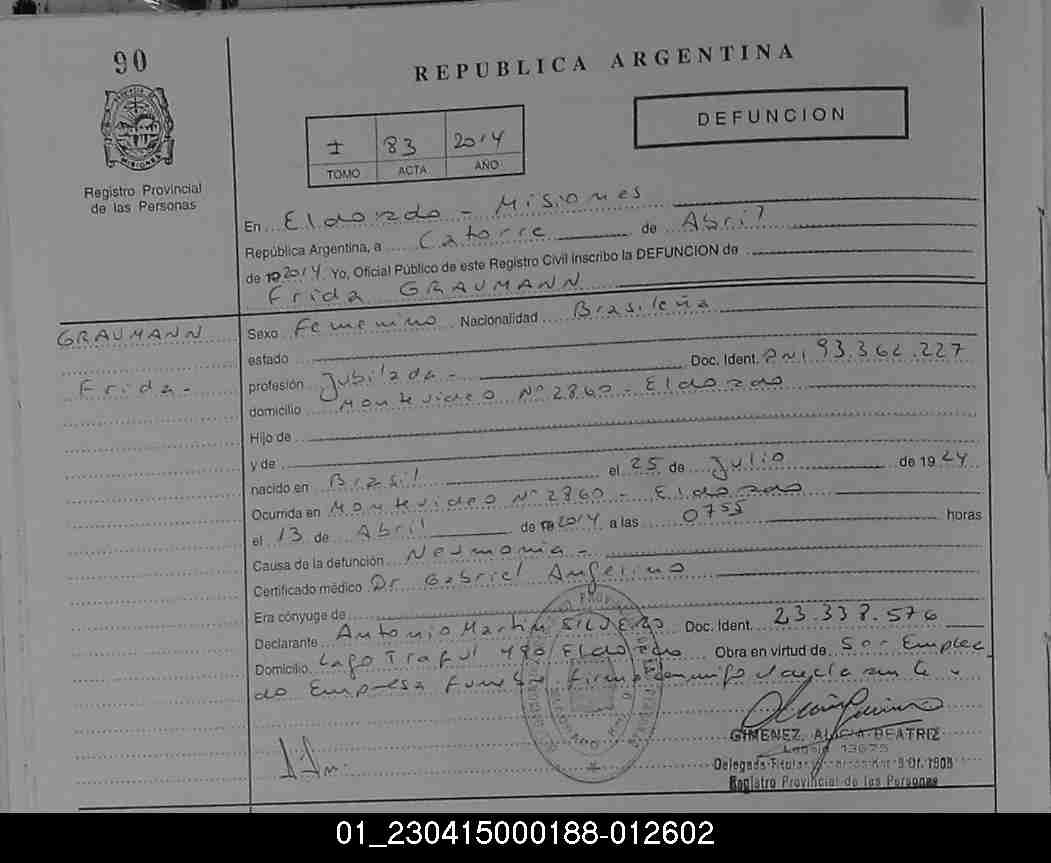 90
REPUBLICA ARGENTINA
DEFUNCION
I 83 2014
TOMO ACTA AÑO
Registro Provincial
de las Personas
En Eldorado - Misiones
República Argentina, a Catorce de Abril
de 2014 Yo, Oficial Público de este Registro Civil inscribo la DEFUNCION de
Frida GRAUMANN
GRAUMANN
Frida -
Sexo Femenino Nacionalidad Brasileña
estado
profesión Jubilada - Doc. Ident. DNI 93.362.227
domicilio Montevideo Nº 2860 - Eldorado
Hijo de
y de
nacido en Brasil el 25 de Julio de 1924
Ocurrida en Montevideo Nº 2860 - Eldorado
el 13 de Abril de 2014 a las 0755 horas
Causa de la defunción Neumonia -
Certificado médico Dr. Gabriel Angelino
Era cónyuge de
Declarante Antonio Martin SILVERO Doc. Ident. 23.338.576
Domicilio Lago Traful 480 Eldorado Obra en virtud de Ser Emplea
do Empresa Funebre firma conmigo
GIMENEZ, ALICIA BEATRIZ
Registro Provincial de las Personas
01_230415000188-012602